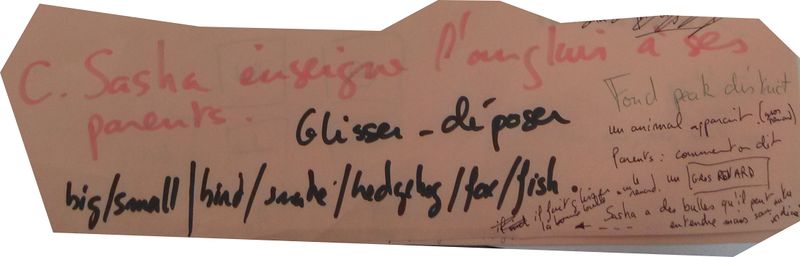 C. Sasha enseigne l'anglais à ses
parents.
Glisser - déposer
big/small/bird/snake/hedgehog/fox/fish.
Fond peak district
un animal apparaît. (gros renard)
Parents : comment on dit
un GROS RENARD
il faut glisser
la bonne bulle
Sasha a des bulles qu'il peut
entendre mais